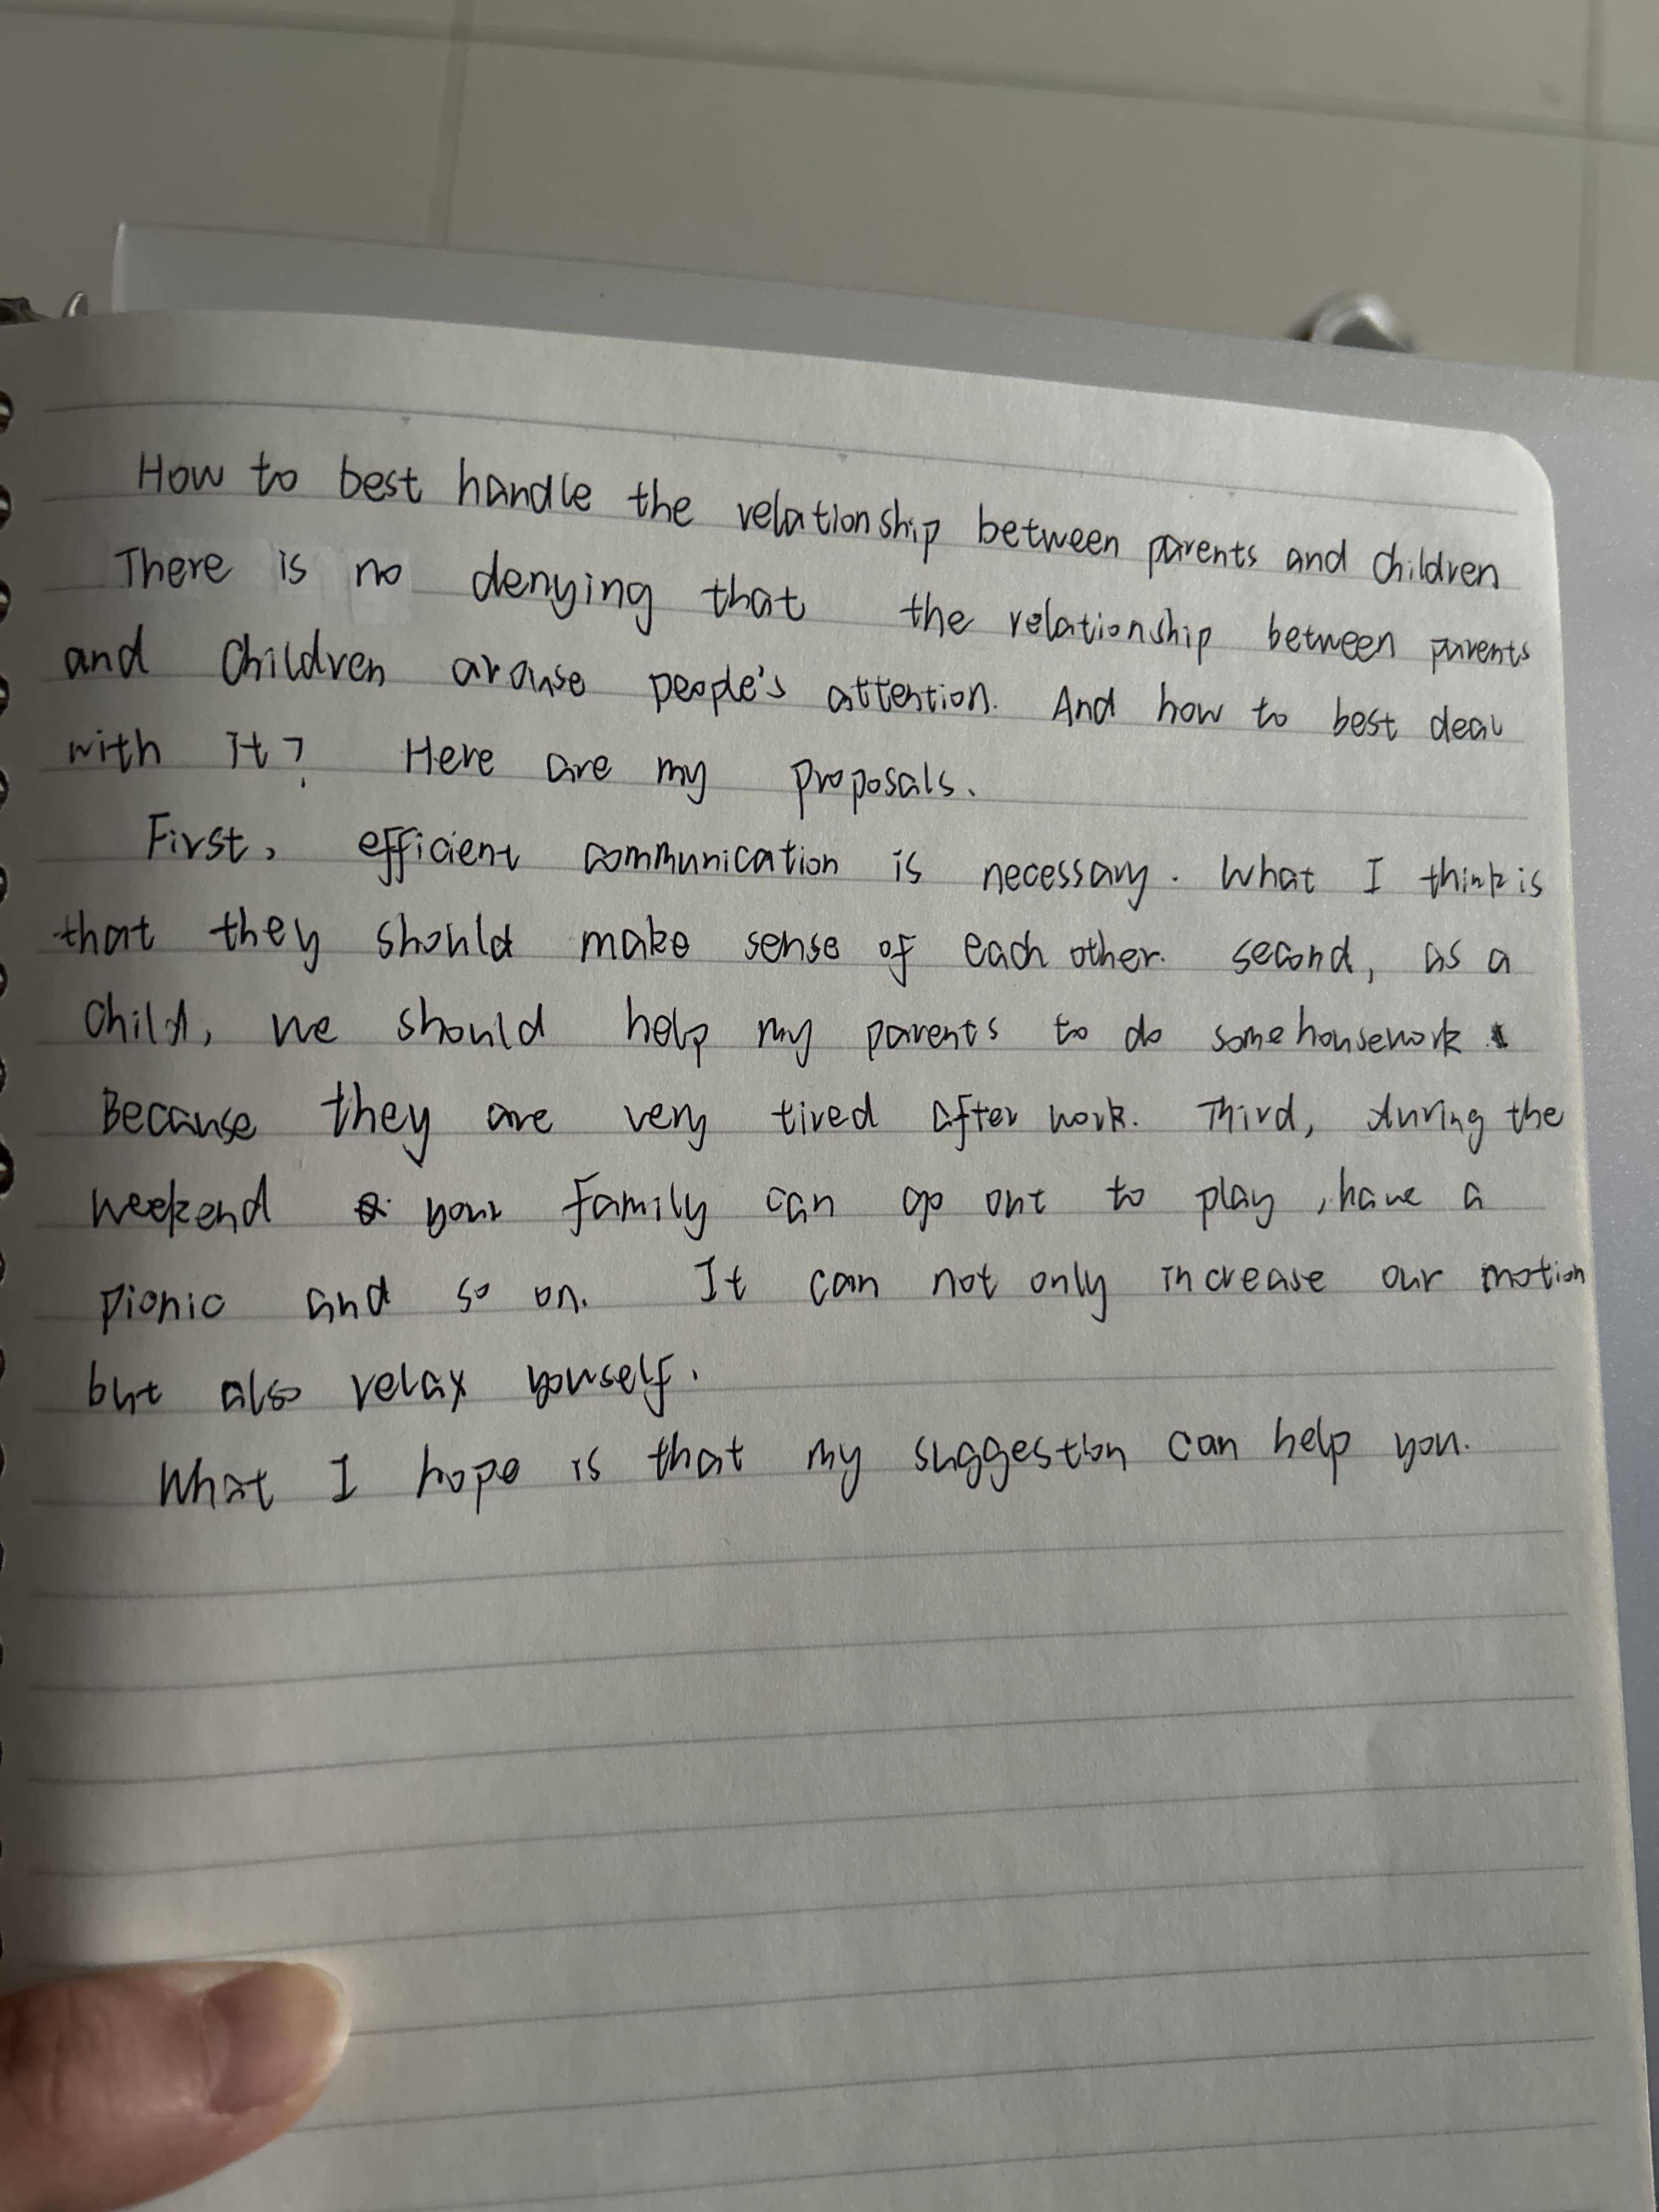 How to best handle the relationship between parents and children
There is no denying that the relationship between parents
and children arouse people's attention. And how to best deal
with it? Here are my proposals.
First, efficient communication is necessary. What I think is
that they should make sense of each other. second, as a
child, we should help my parents to do some housework.
Because they are very tired after work. Third, during the
weekend your family can go out to play, have a
picnic and so on. It can not only increase our motion
but also relax yourself.
What I hope is that my suggestion can help you.